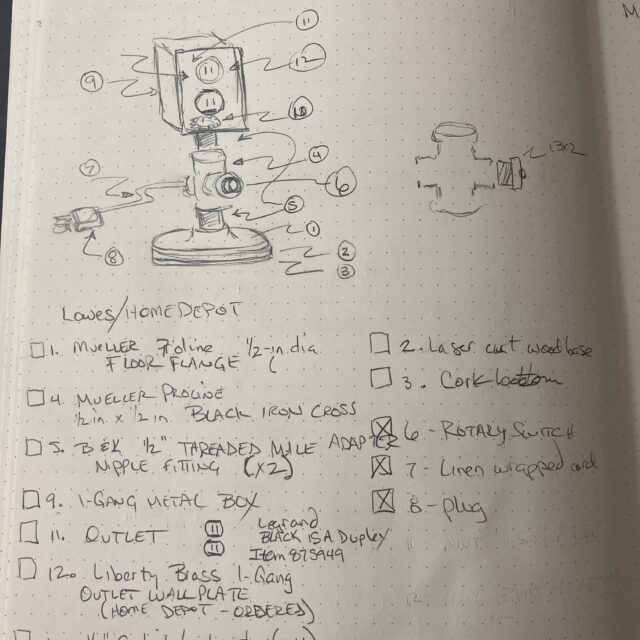 11
12
9
10
4
7
6
5
1
8
2
3
13x2
LOWES/HOME DEPOT
1. MUELLER Proline 1/2-in dia
FLOOR FLANGE
4. MUELLER PROLINE
1/2 in x 1/2 in. BLACK IRON CROSS
5. B&K 1/2" THREADED MALE ADAPTER
NIPPLE FITTING (x2)
9. 1-GANG METAL BOX
11. OUTLET
Legrand
BLACK 15A Duplex
Item 875949
12. Liberty Brass 1-Gang
OUTLET WALL PLATE
(HOME DEPOT - ORDERED)
2. Laser cut wood base
3. Cork bottom
6 - ROTARY SWITCH
7 - Linen wrapped cord
8 - plug